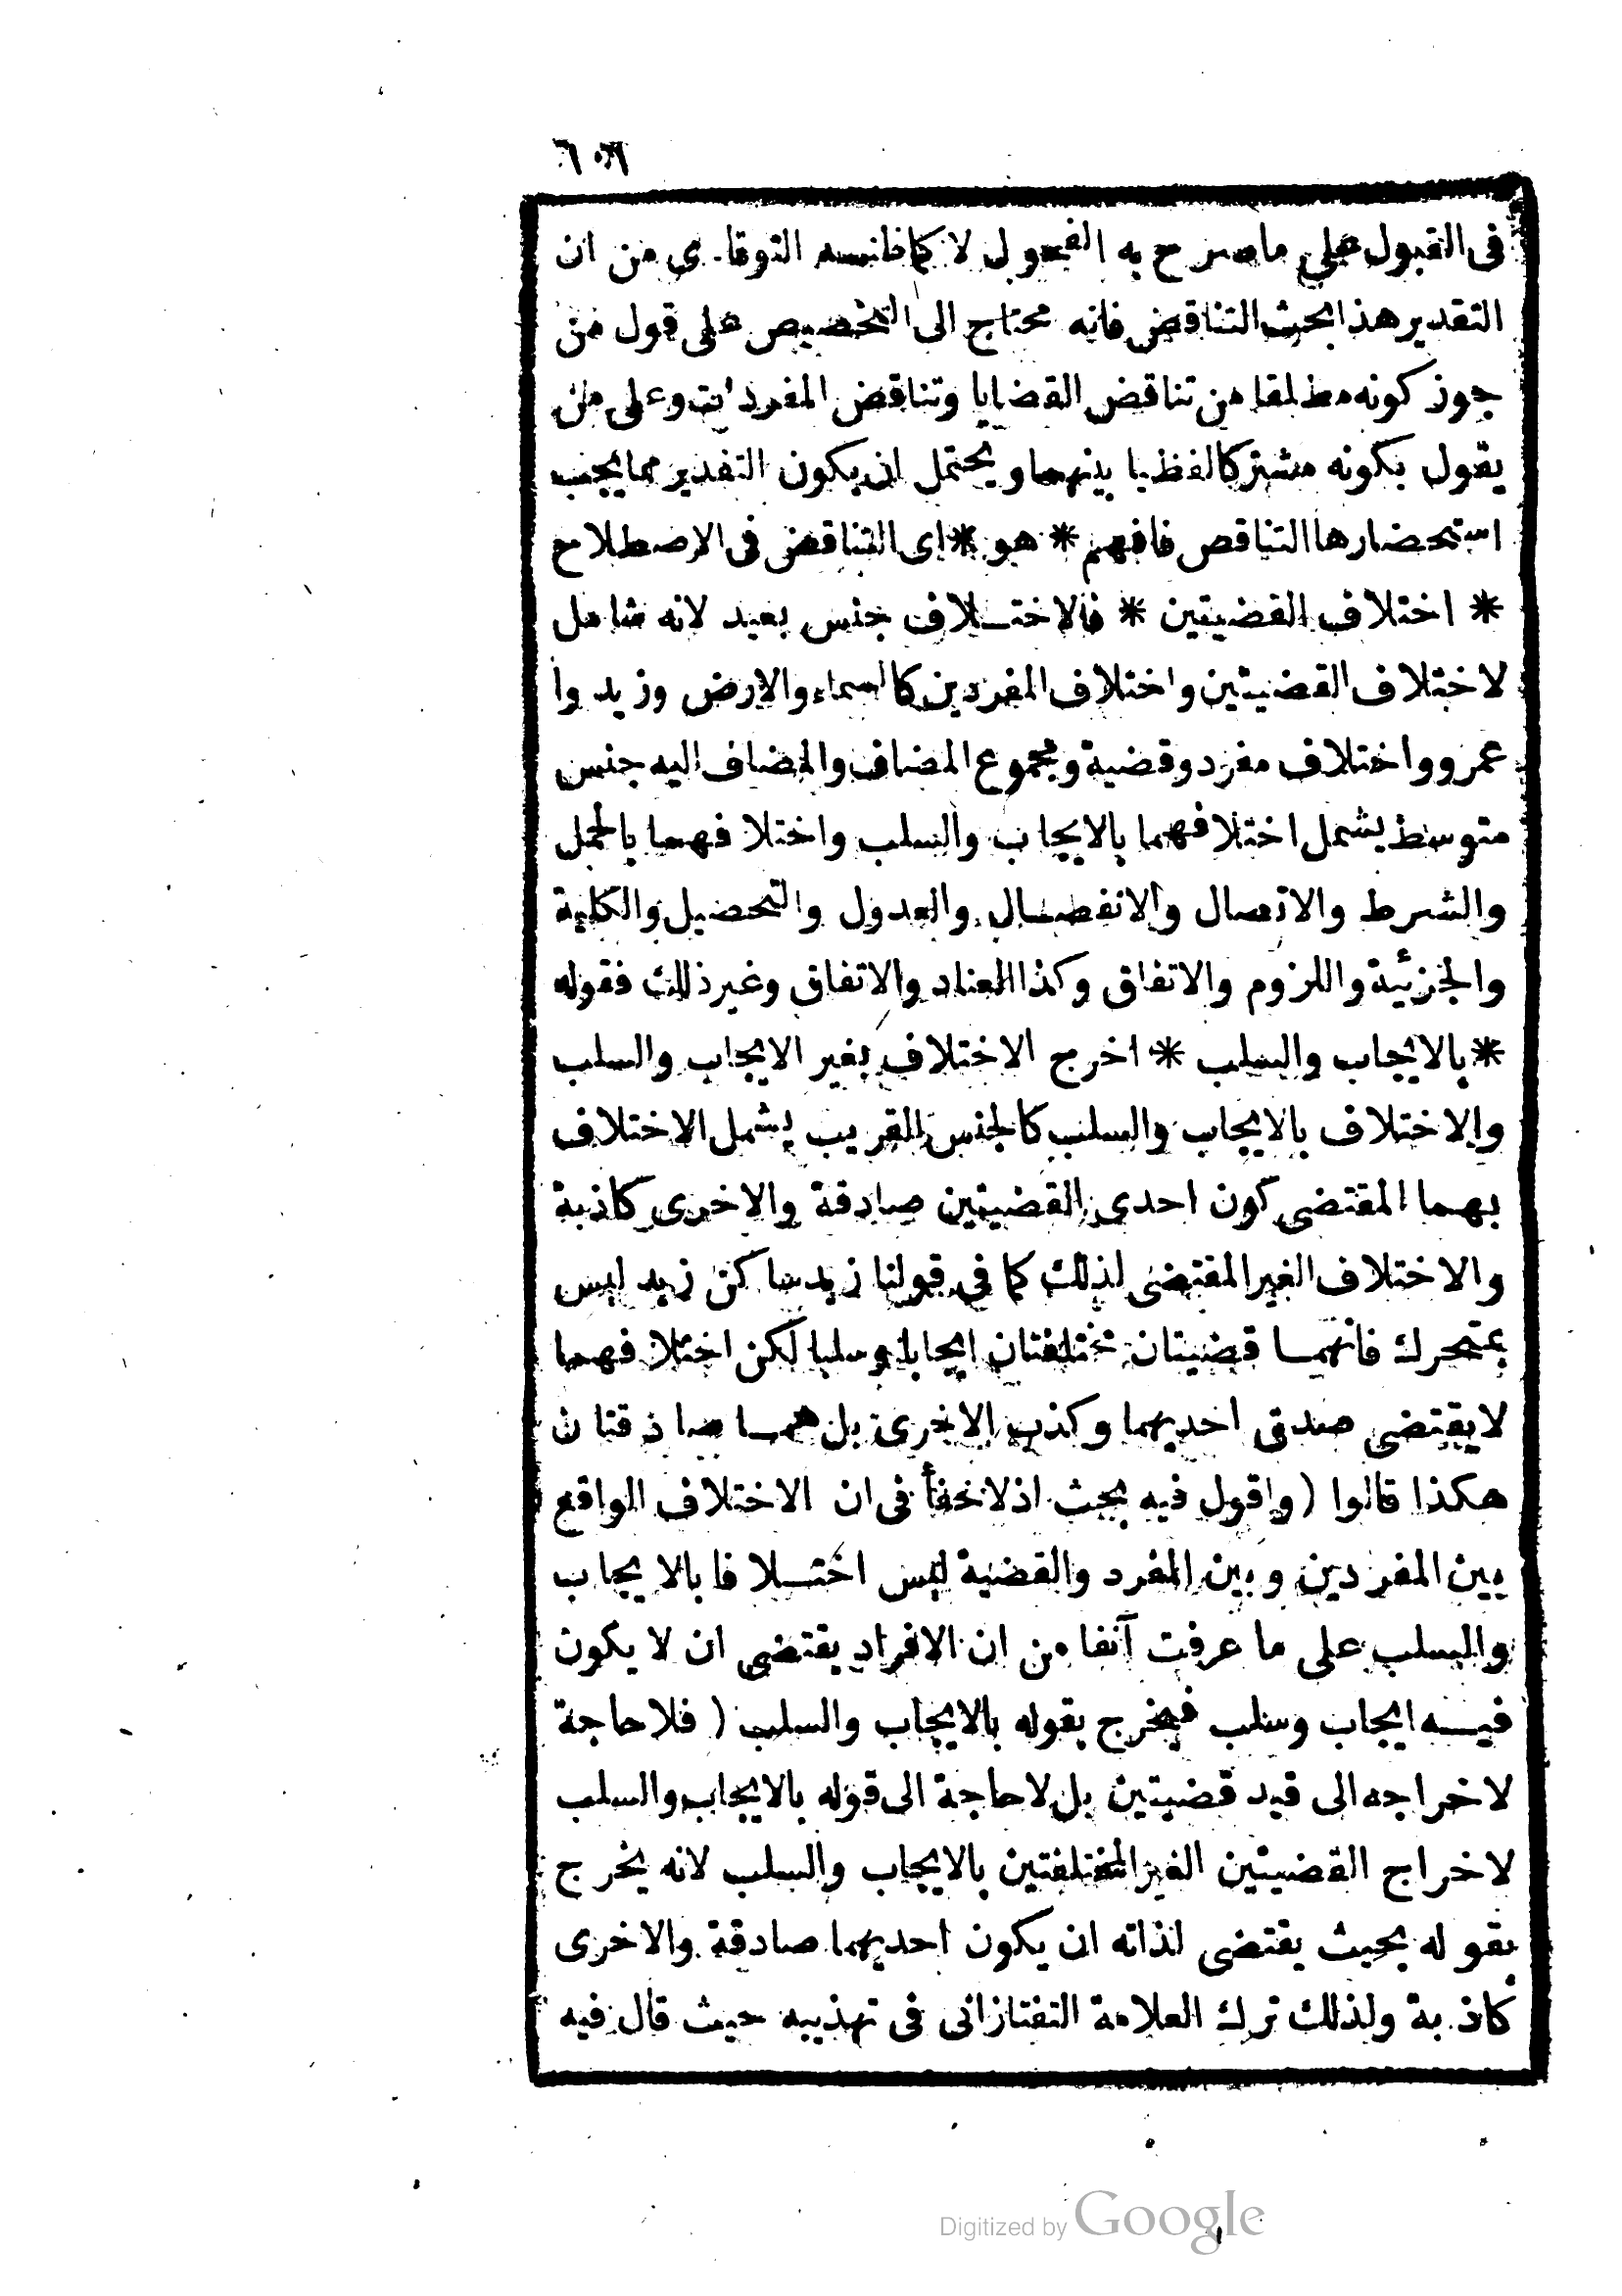 ٦٠٦
فى القبول على ماصرح به الفحول لا كما ظنه التوقادى من ان
التقدير هذا بحث التناقض فانه محتاج الى التخصيص على قول من
جوز كونه مطلقا من تناقض القضايا وتناقض المفردات وعلى من
يقول بكونه مشتركا لفظيا بينهما ويحتمل ان يكون التقدير مما يجب
استحضارها التناقض فافهم * هو * اى التناقض فى الاصطلاح
* اختلاف القضيتين * فالاختلاف جنس بعيد لانه شامل
لاختلاف القضيتين واختلاف المفردين كالسماء والارض وزيد وا
عمرو واختلاف مفرد وقضية ومجموع المضاف والمضاف اليه جنس
متوسط يشمل اختلافهما بالايجاب والسلب واختلافهما بالحمل
والشرط والاتصال والانفصال والعدول والتحصيل والكلية
والجزئية واللزوم والاتفاق وكذا العناد والاتفاق وغير ذلك فقوله
* بالايجاب والسلب * اخرج الاختلاف بغير الايجاب والسلب
والاختلاف بالايجاب والسلب كالجنس القريب يشمل الاختلاف
بهما المقتضى كون احدى القضيتين صادقة والاخرى كاذبة
والاختلاف الغير المقتضى لذلك كما فى قولنا زيد ساكن زيد ليس
بمتحرك فانهما قضيتان مختلفتان ايجابا وسلبا لكن اختلافهما
لايقتضى صدق احديهما وكذب الاخرى بل هما صادقتان
هكذا قالوا ( واقول فيه بحث اذلاخفأ فى ان الاختلاف الواقع
بين المفردين وبين المفرد والقضية ليس اختلافا بالايجاب
والسلب على ما عرفت آنفا من ان الافراد يقتضى ان لا يكون
فيه ايجاب وسلب فيخرج بقوله بالايجاب والسلب ( فلا حاجة
لاخراجه الى قيد قضيتين بل لا حاجة الى قوله بالايجاب والسلب
لاخراج القضيتين الغير المختلفتين بالايجاب والسلب لانه يخرج
بقوله بحيث يقتضى لذاته ان يكون احديهما صادقة والاخرى
كاذبة ولذلك ترك العلامة التفتازانى فى تهذيبه حيث قال فيه
Digitized by Google